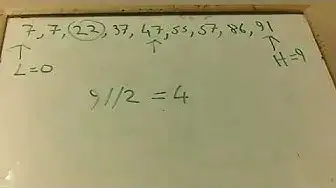 7, 7, 22, 37, 47, 55, 57, 86, 91
L=0
H=9
9//2 = 4